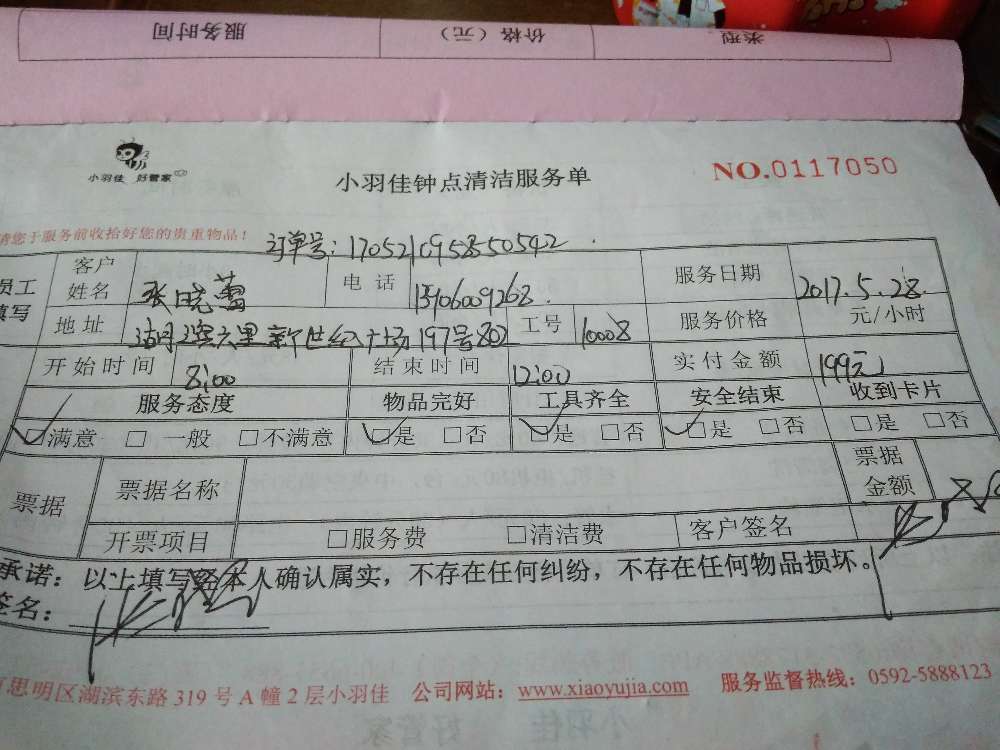 服务时间 价格（元） 类型
小羽佳 好管家
小羽佳钟点清洁服务单
NO.0117050
请您于服务前收拾好您的贵重物品！
订单号：1705210958550542
员工填写 客户姓名 张晓蕾 电话 13906009268 服务日期 2017.5.28.
地址 湖滨六里新世纪广场197号802 工号 10008 服务价格 元/小时
开始时间 8:00 结束时间 12:00 实付金额 199元
服务态度 物品完好 工具齐全 安全结束 收到卡片
□满意 □一般 □不满意 □是 □否 □是 □否 □是 □否 □是 □否
票据 票据名称 票据金额
开票项目 □服务费 □清洁费 客户签名
承诺：以上填写经本人确认属实，不存在任何纠纷，不存在任何物品损坏。
签名：
思明区湖滨东路 319 号 A 幢 2 层小羽佳 公司网站：www.xiaoyujia.com 服务监督热线：0592-5888123
小羽佳 好管家